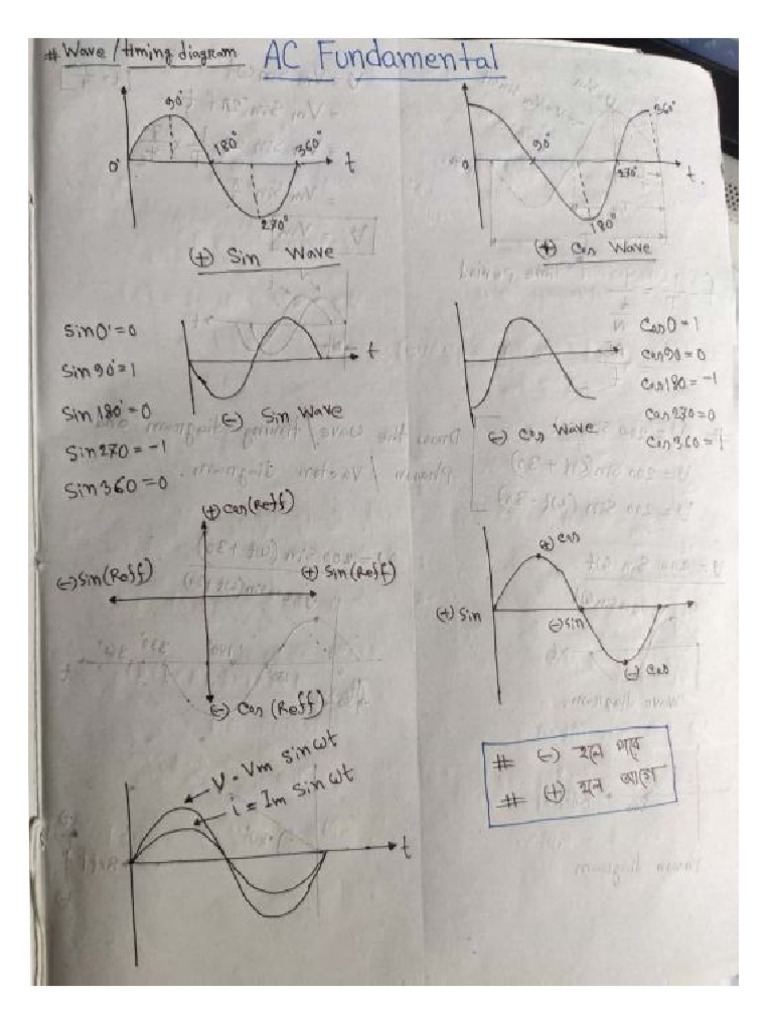 # Wave / timing diagram
AC Fundamental
90°
180°
360°
0°
t
270°
(+) Sin Wave
360°
90°
0
270°
t
180°
(+) Cos Wave
Sin 0° = 0
Sin 90° = 1
Sin 180° = 0
Sin 270 = -1
Sin 360 = 0
t
(-) Sin Wave
Cos 0 = 1
Cos 90 = 0
Cos 180 = -1
Cos 270 = 0
Cos 360 = 1
(-) Cos Wave
(+) Cos (Reff)
(-) Sin (Reff)
(+) Sin (Reff)
(-) Cos (Reff)
(+) Cos
(+) Sin
(-) Sin
(-) Cos
V = Vm sin ωt
i = Im sin ωt
t
# (-) হলে পরে
# (+) হলে আগে